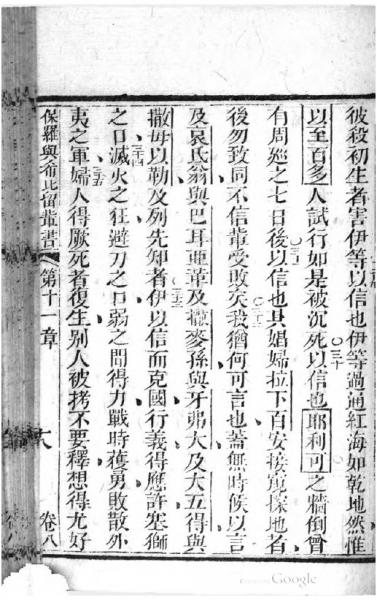 彼殺初生者害伊等以信也伊等過通紅海如乾地然惟
以至百多人試行如是被沉死以信也耶利可之牆倒曾
有周廵之七日後以信也其娼婦拉下百安接窺探地者
後勿致同不信輩受敗矣我猶何可言也蓋無時候以言
及哀氏翁與巴耳亜革及撒麥孫與牙弗大及大五得與
撒母以勒及列先知者伊以信而克國行義得應許塞獅
之口滅火之狂避刀之口弱之間得力戰時獲勇敗散外
夷之軍婦人得厥死者復生別人被拷不要釋想得尤好
保羅與希比留輩書 第十一章 卷八
三十
三一
三二
三三
三四
三五
Google